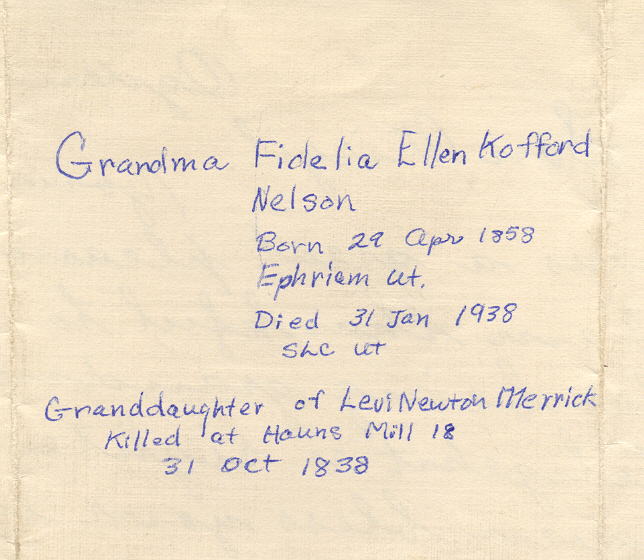 Grandma Fidelia Ellen Kofford
Nelson
Born 29 Apr 1858
Ephriem Ut.
Died 31 Jan 1938
SLC Ut
Granddaughter of Levi Newton Merrick
Killed at Hauns Mill 18
31 Oct 1838